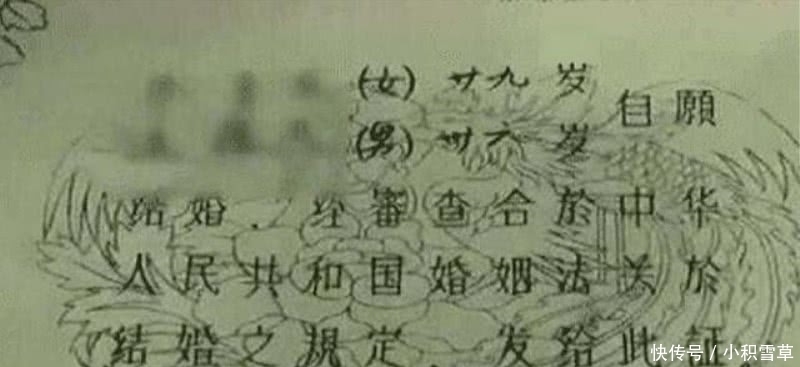 (女) 廿九 岁
(男) 卅六 岁
自願
结婚，经審查合於中华
人民共和国婚姻法关於
结婚之規定，发给此証。
快传号 / 小积雪草